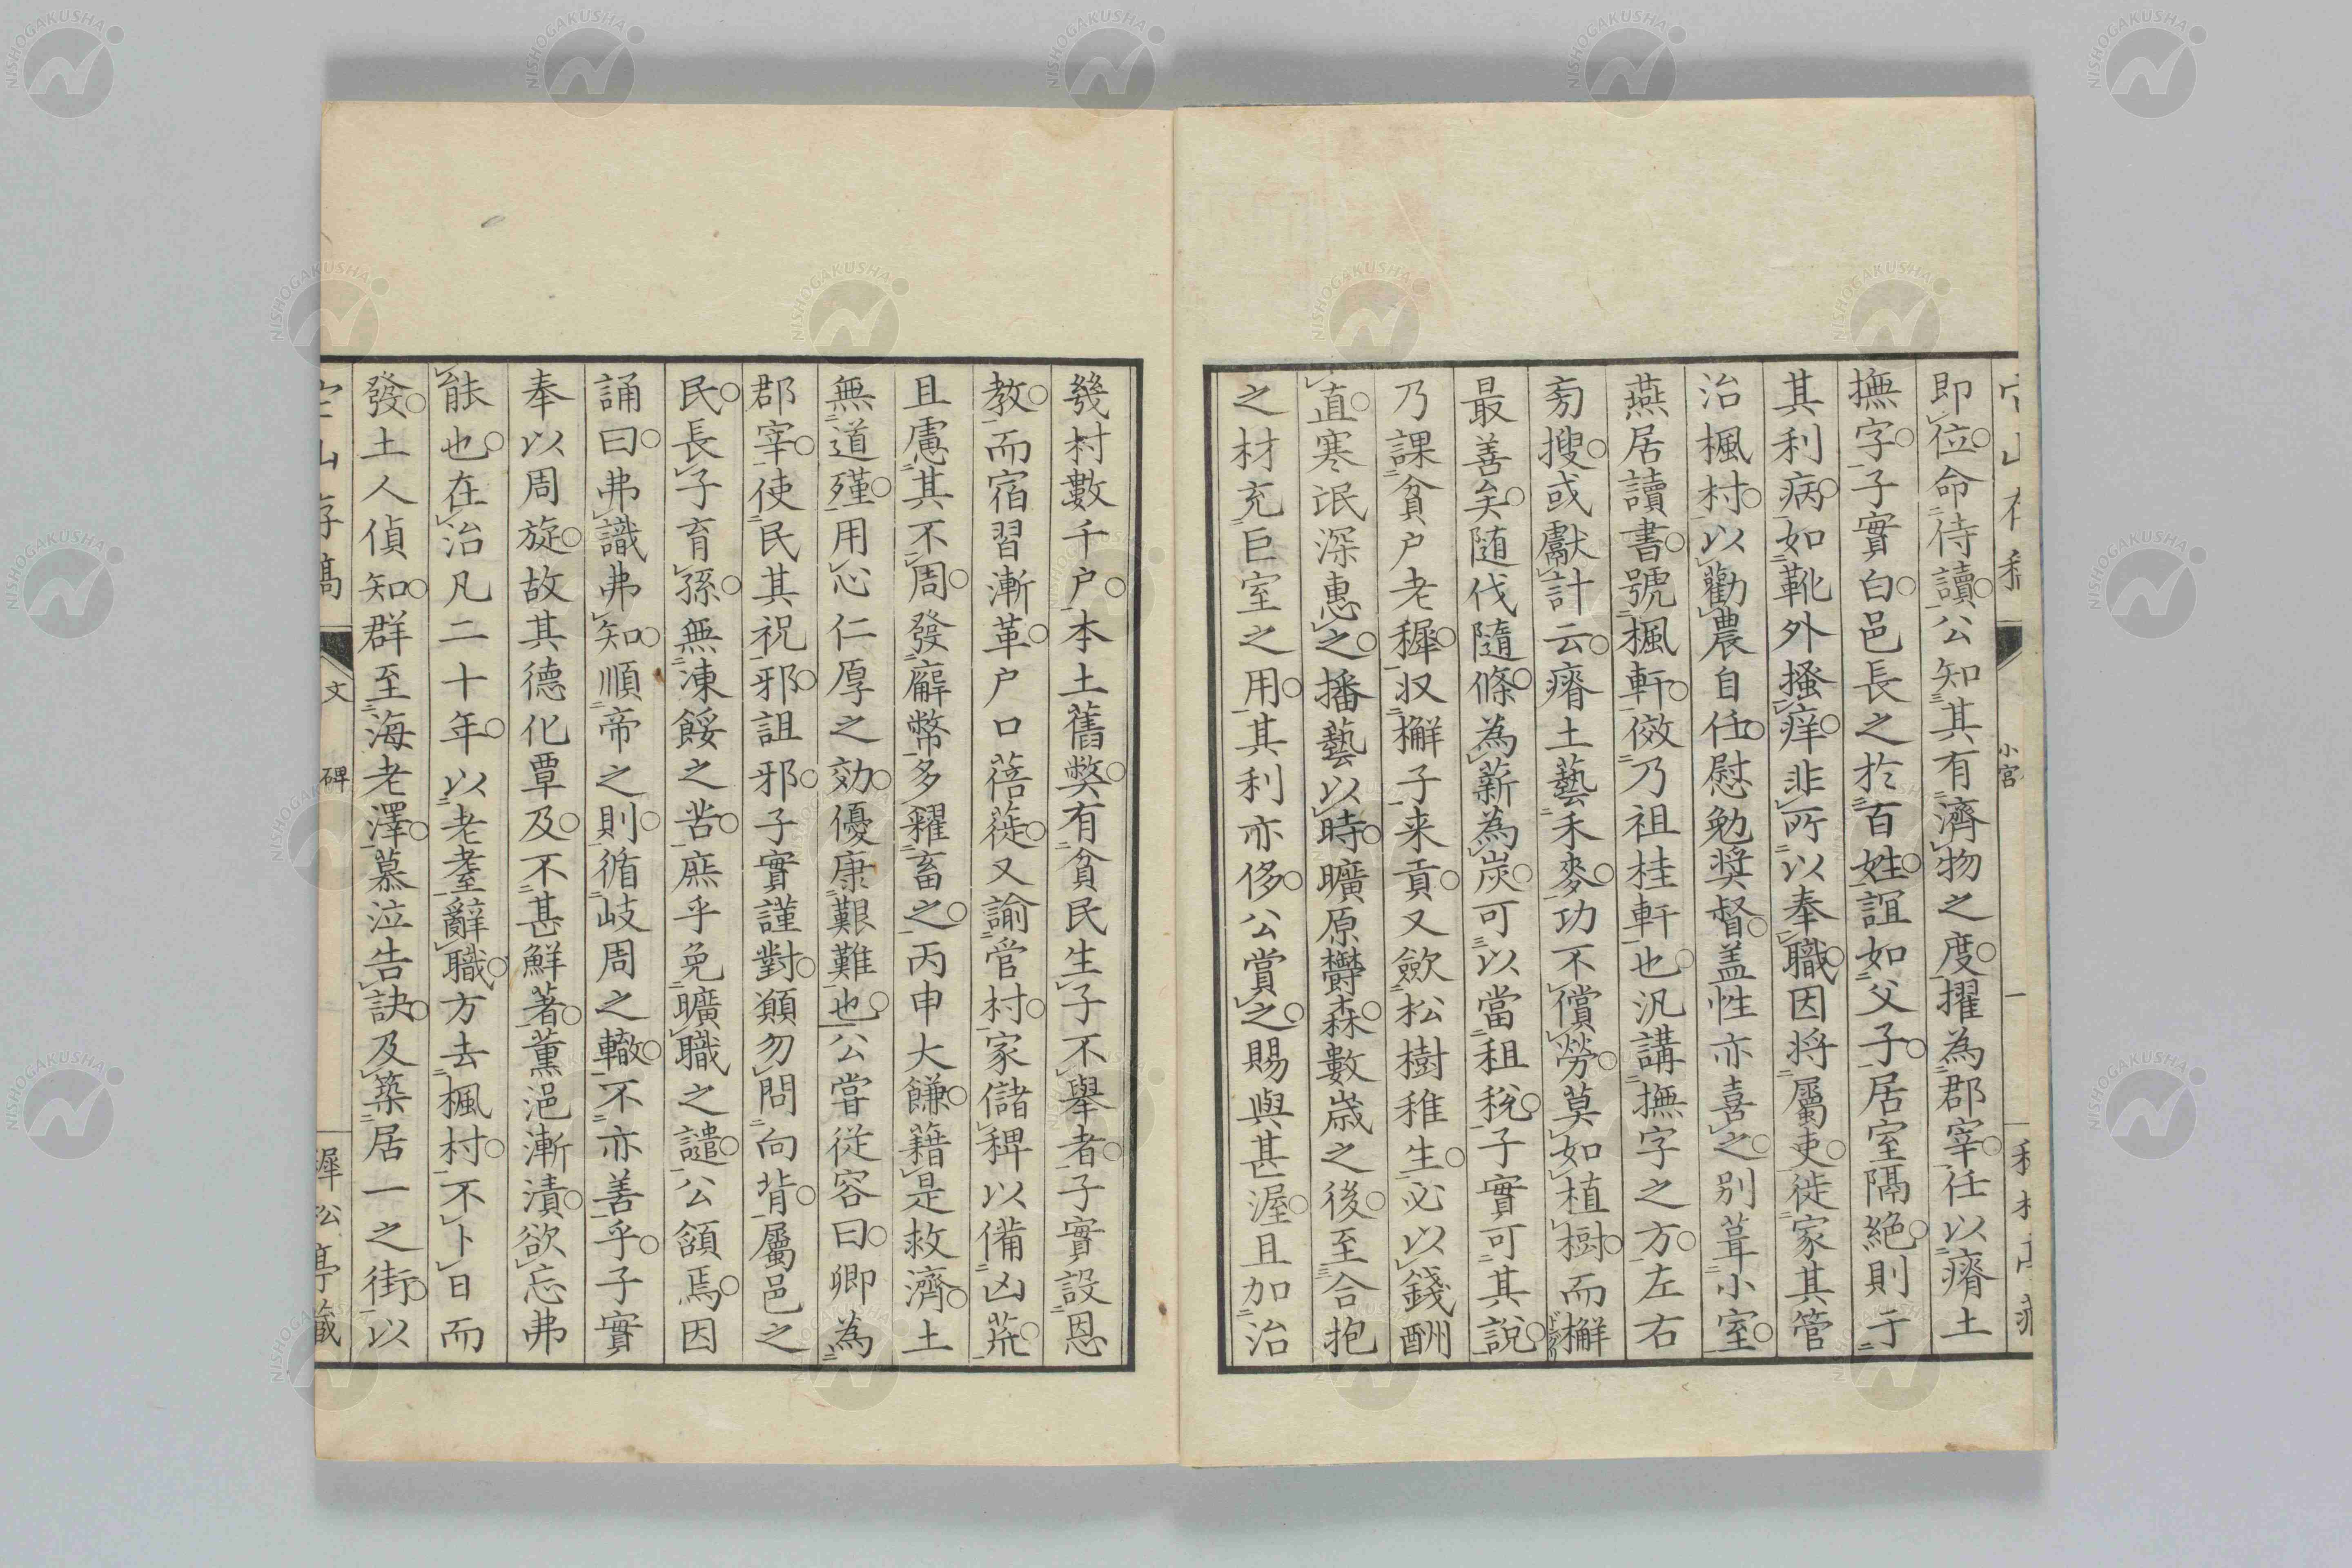 即位命侍讀公知其有濟物之度擢為郡宰任以瘠土
撫字子實白邑長之於百姓誼如父子居室隔絶則于
其利病如靴外搔痒非所以奉職因将屬吏徙家其管
治楓村以勸農自任慰勉奨督盖性亦喜之別葺小室
燕居讀書號楓軒傚乃祖桂軒也汎講撫字之方左右
旁搜或獻計云瘠土藝禾麥功不償勞莫如植樹而檞
最善矣随伐隨條為薪為炭可以當租税子實可其説
乃課貧戶老穉収檞子来貢又歛松樹稚生必以錢酬
直寒氓深惠之播藝以時曠原欝森數歳之後至合抱
之材充巨室之用其利亦侈公賞之賜與甚渥且加治
幾村數千户本土舊獘有貧民生子不舉者子實設恩
教而宿習漸革户口蓓蓰又諭管村家儲稗以備凶荒
且慮其不周發廨幣多糴畜之丙申大饑藉是救濟土
無道殣用心仁厚之効優康艱難也公嘗従容曰卿為
郡宰使民其祝邪詛邪子實謹對願勿問向背屬邑之
民長子育孫無凍餒之苦庶乎免曠職之譴公頷焉因
誦曰弗識弗知順帝之則循岐周之轍不亦善乎子實
奉以周旋故其德化覃及不甚鮮著薫浥漸漬欲忘弗
能也在治凡二十年以老耋辭職方去楓村不卜日而
發土人偵知群至海老澤慕泣告訣及築居一之街以
文
碑
小宮